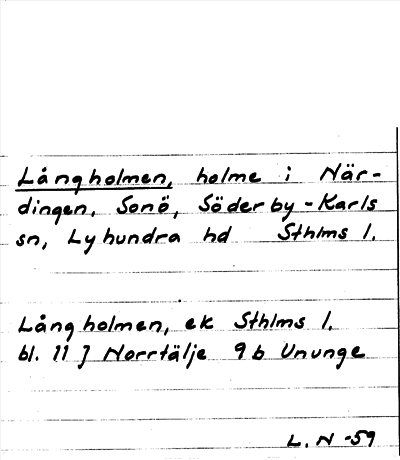 Långholmen, holme i När-
dingen, Sonö, Söderby-Karls
sn, Lyhundra hd Sthlms l.
Långholmen, ek Sthlms l.
bl. 11 J Norrtälje 9b Ununge
L. N -59